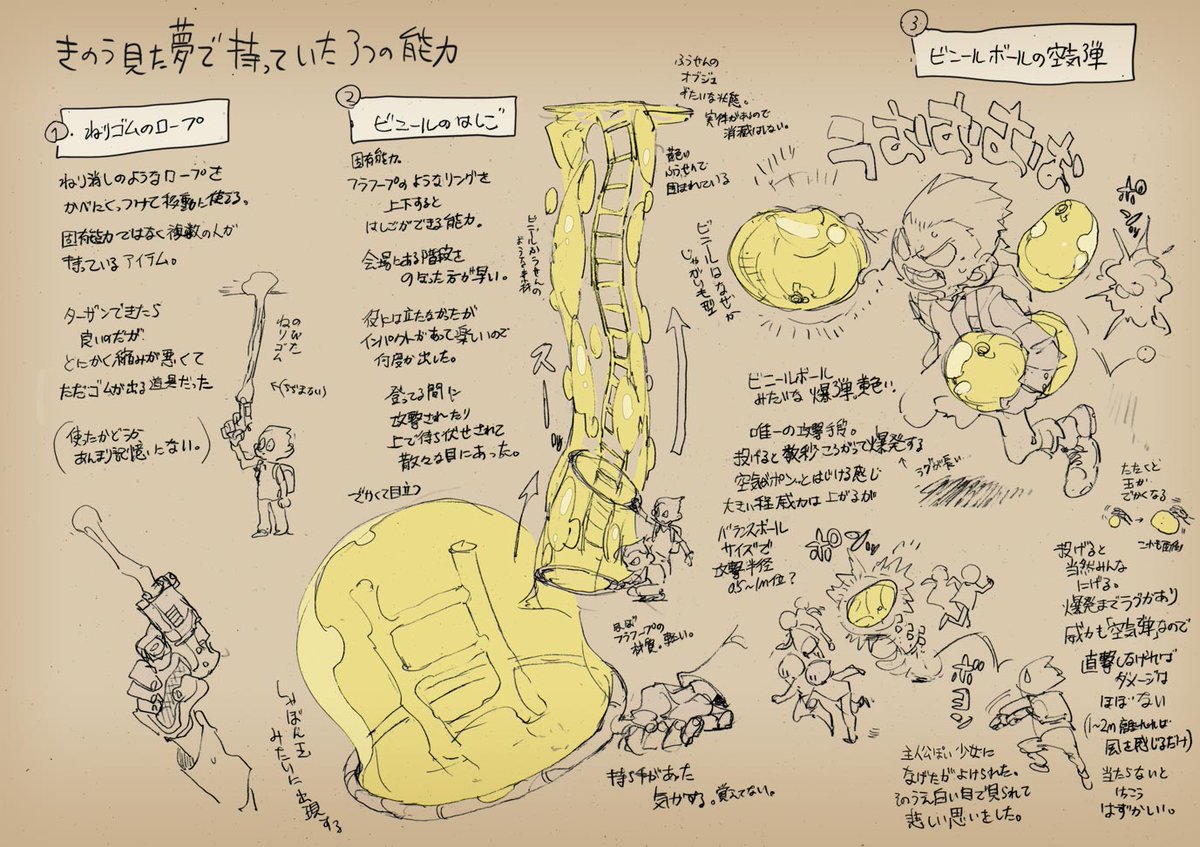 きのう見た夢で持っていた3つの能力
①
ねりゴムのロープ
ねり消しのようなロープを
かべにくっつけて移動に使える。
固有能力ではなく複数の人が
持っているアイテム。
ターザンできたら
良いのだが
とにかく絡みが悪くて
ただゴムが出る道具だった
(使ったかどうか
あんまり記憶にない。)
のびた
ねりゴム
②
ビニールのはしご
固有能力。
フラフープのようなリングを
上下すると
はしごができる能力。
会場にある階段を
のぼった方が早い。
役には立たなかったが
インパクトがあって楽しいので
何度か出した。
登ってる間に
攻撃されたり
上で待ち伏せされて
散々な目にあった。
でかくて目立つ
ビニールふうせんの
ような素材
ふうせんの
オブジェ
みたいな状態。
実体があるので
消滅はしない。
黄色い
ふうせんで
囲まれている
ズ
オッ
ほぼ
フラフープの
材質。軽い。
しゃぼん玉
みたいに出現
する
持ち手があった
気がする。覚えてない。
③
ビニールボールの空気弾
うおおおお
ボンッ
ビニールはなぜか
じゃがいも型
ビニールボール
みたいな爆弾。黄色い。
唯一の攻撃手段。
投げると数秒ころがって爆発する
ラグが長い
空気がポンッとはじける感じ
大きい程威力は上がるが
バランスボール
サイズで
攻撃半径
0.5~1m位?
ボンッ
たたくと
玉が
でかくなる
投げると
当然みんな
にげる。
爆発までラグがあり
威力も「空気弾」なので
直撃しなければ
ダメージは
ほぼない
(1~2m離れれば
風を感じるだけ)
当たらないと
けっこう
はずかしい。
主人公ぽい少女に
なげたがよけられた。
そのうえ白い目で見られて
悲しい思いをした。